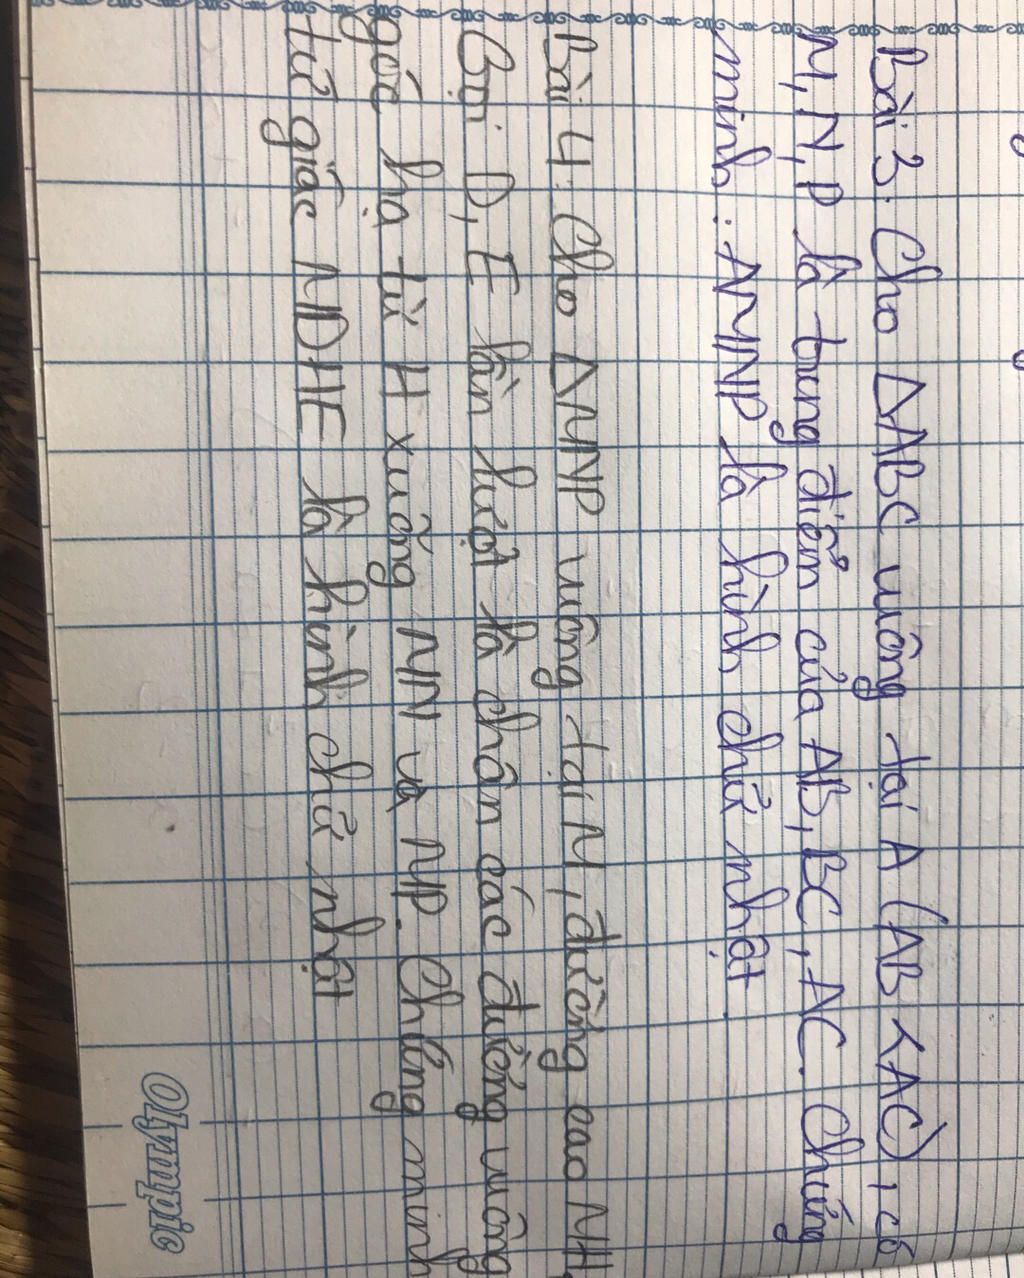 Bài 3. Cho ΔABC vuông tại A (AB < AC), có
M, N, P là trung điểm của AB, BC, AC. Chứng
minh: AMNP là hình chữ nhật
Bài 4: Cho ΔMNP vuông tại N, đường cao NH,
Gọi D, E lần lượt là chân các đường vuông
góc hạ từ H xuống MN và NP. Chứng minh
tứ giác NDHE là hình chữ nhật
Olympic